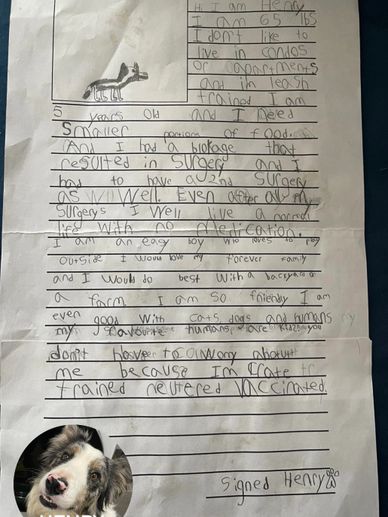 Hi I am Henry
I am 65 lbs
I don't like to
live in condos
or apartments
and im leash
trained I am
5 years old and I need
Smaller portions of food.
And I had a blotage that
resulted in Surgery and I
had to have a 2nd Surgery
as well. Even after all my
Surgerys I Well live a normal
life with no medication.
I am an easy boy who loves to play
outside I would love my forever family
and I would do best with a backyard or
a farm I am so friendly I am
even good with cats, dogs and humans my
my favourite humans are kids! you
don't have to worry about
me because Im Crate tr
trained neutered Vaccinated.
Signed Henry